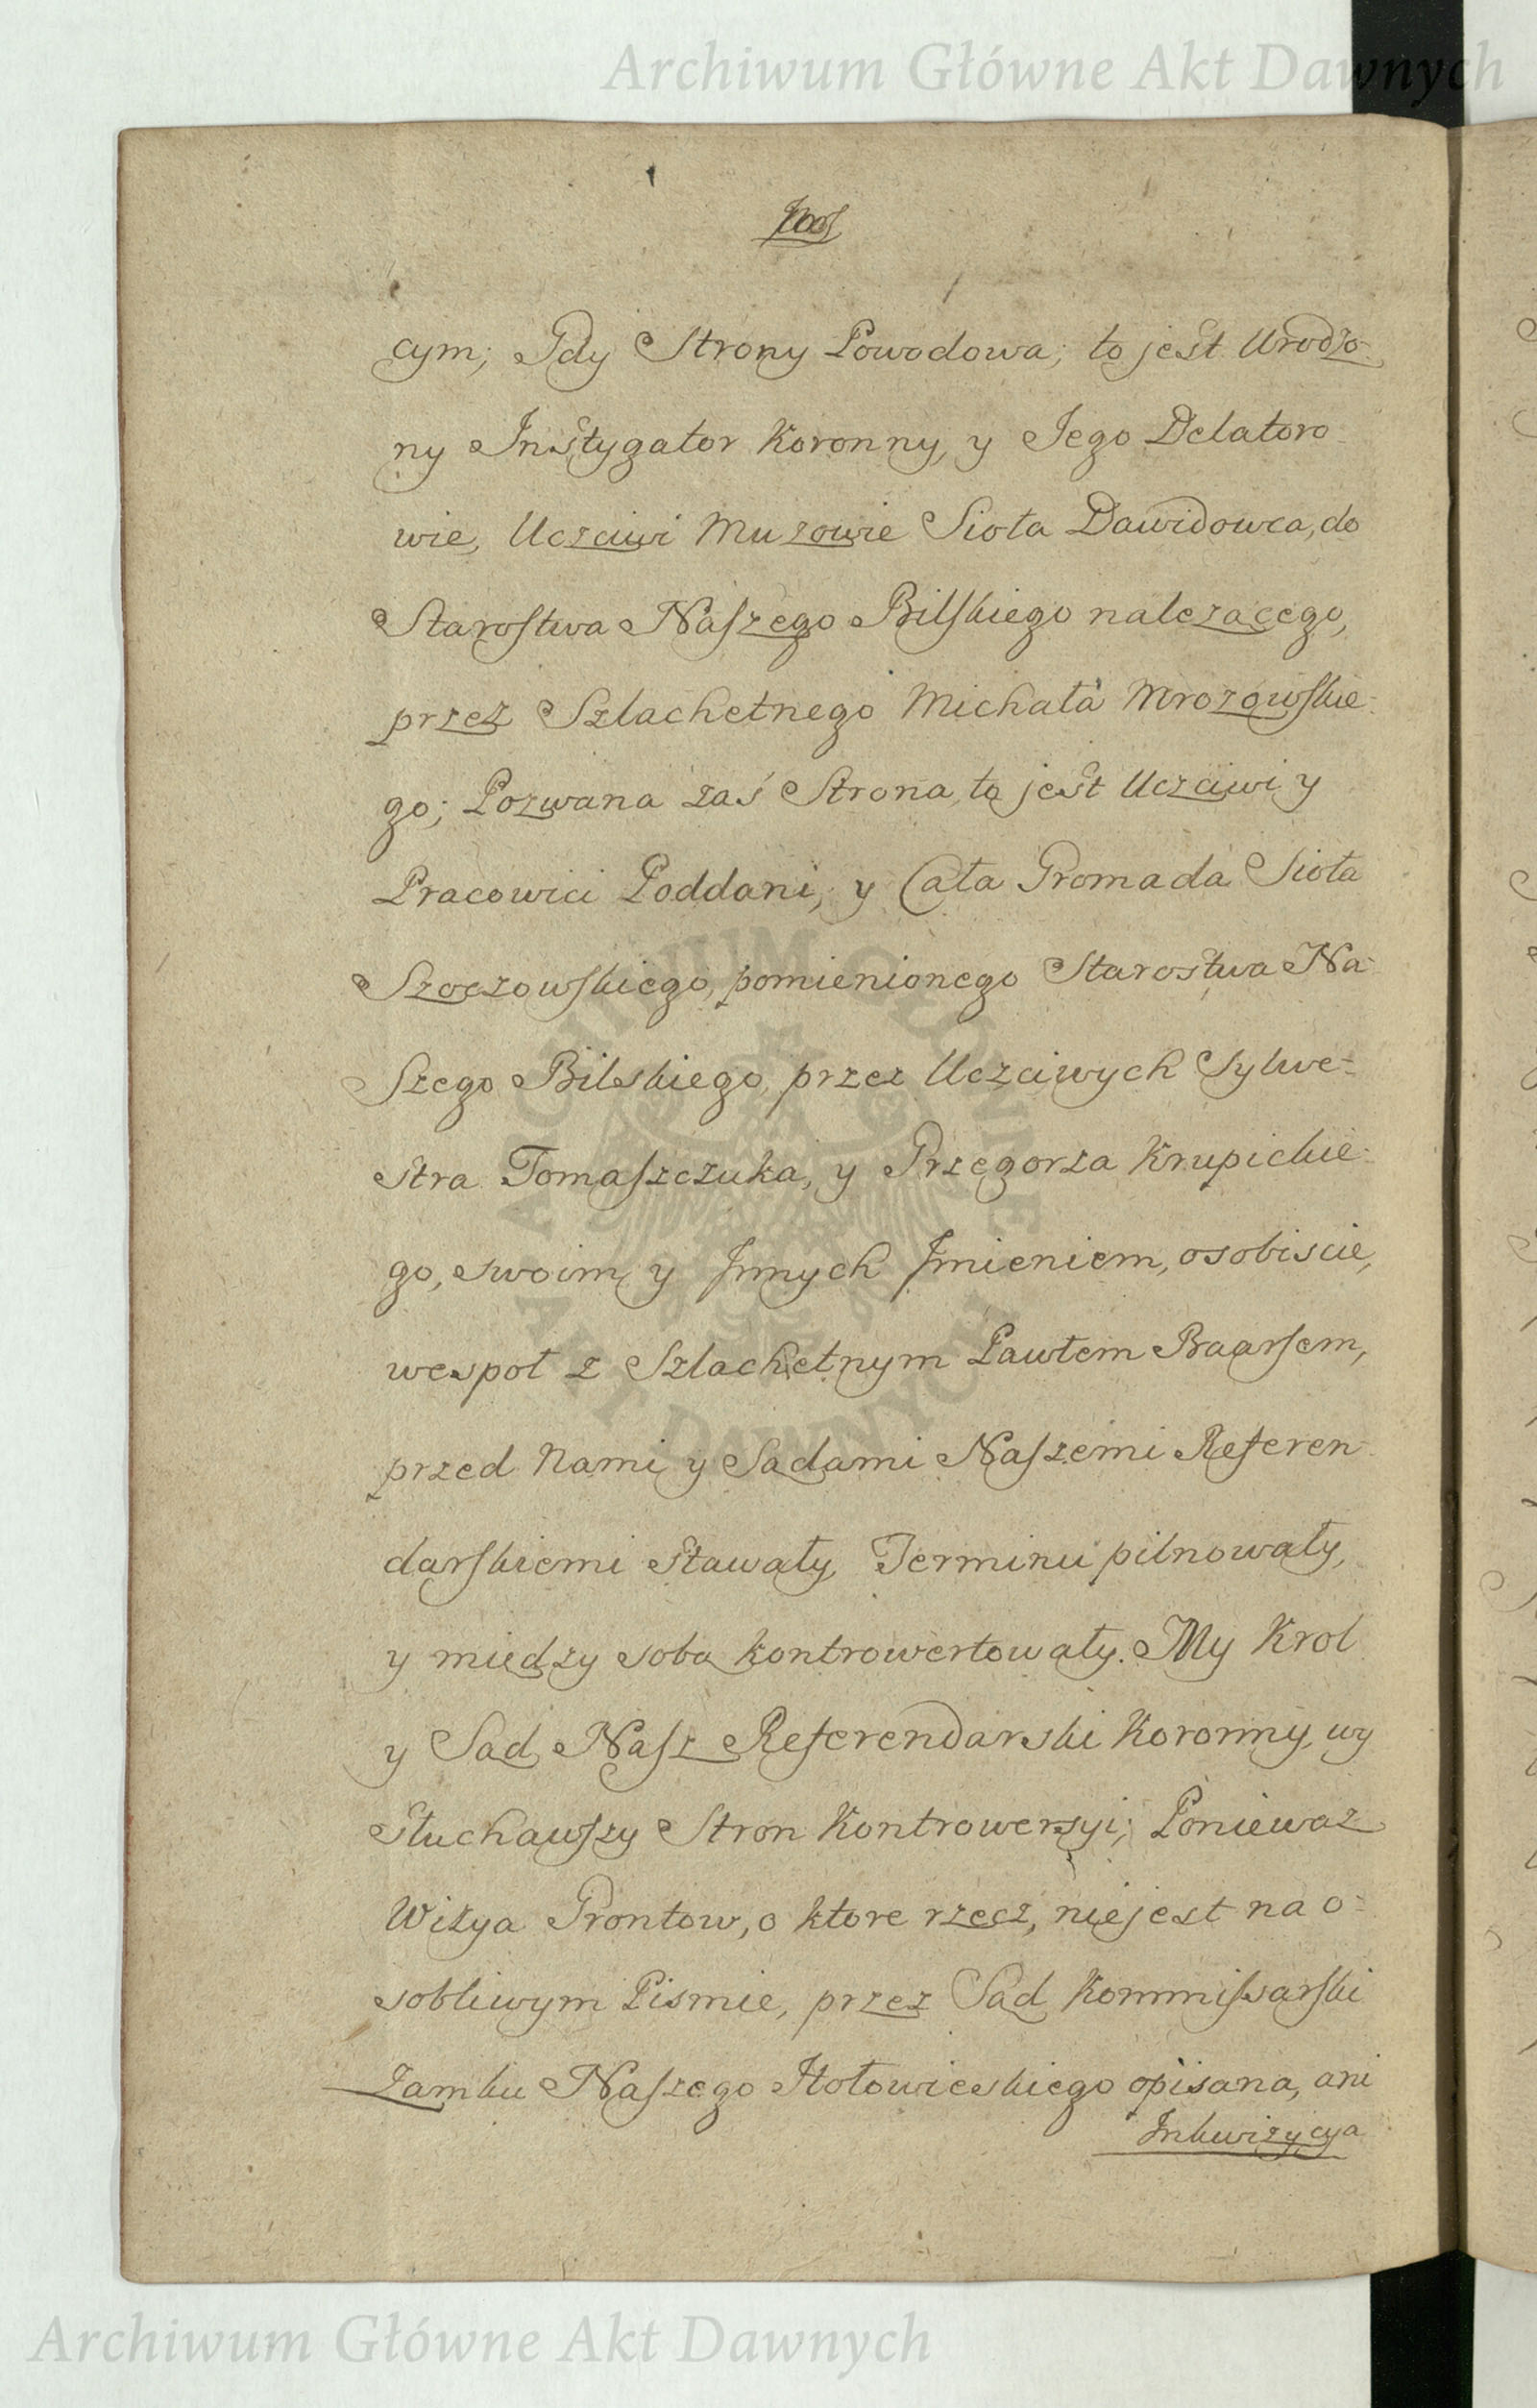 Archiwum Główne Akt Dawnych
cym; Gdy Strony Powodowa; to jest Urodzo-
ny Instygator Koronny, y Jego Delatoro-
wie, Uczciwi Muzowie Sioła Dawidowca, do
Starostwa Naszego Bilskiego należącego,
przez Szlachetnego Michała Mrozowskie-
go; Pozwana zaś Strona, to jest Uczciwi y
Pracowici Poddani, y Cała Gromada Sioła
Szoczowskiego, pomienionego Starostwa Na-
szego Bilskiego, przez Uczciwych Sylwe-
stra Tomaszczuka, y Grzegorza Krupickie-
go, swoim, y Innych Imieniem, osobiscie,
wespoł z Szlachetnym Pawłem Baarsem,
przed Nami, y Sądami Naszemi Referen-
darskiemi stawały, Terminu pilnowały,
y między sobą kontrowertowały. My Krol
y Sąd Nasz Referendarski Koronny, wy
słuchawszy Stron Kontrowersyi; Poniewaz
Wizya Grontow, o ktore rzecz, nie jest na o-
sobliwym Pismie, przez Sąd Kommissarski
Zamku Naszego Hołowieskiego opisana, ani
Inkwizycya
ARCHIWUM GŁÓWNE
AKT DAWNYCH
Archiwum Główne Akt Dawnych